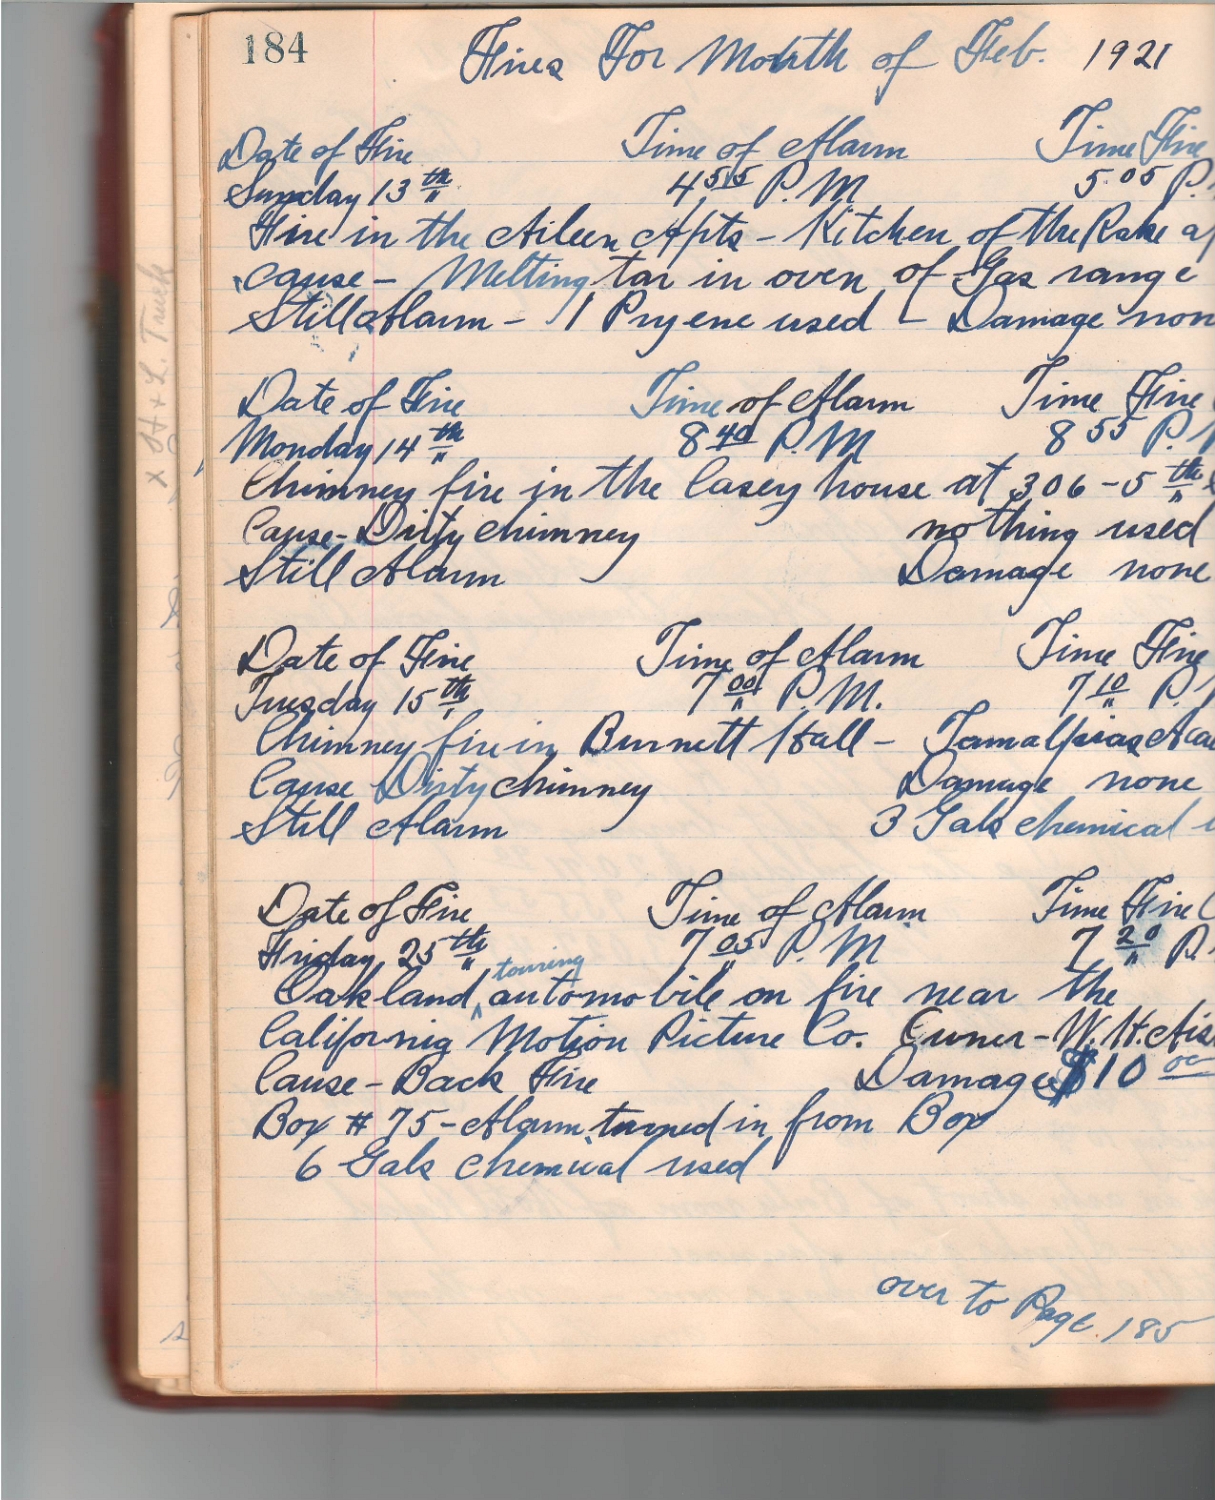 184
Fires For Month of Feb. 1921
Date of Fire Time of Alarm Time Fire
Sunday 13th 4 55 P.M 5 05 P.
Fire in the Aileen Apts - Kitchen of the
cause - Melting tar in oven of Gas range
Still Alarm - 1 Pryene used - Damage non
Date of Fire Time of Alarm Time Fire
Monday 14th 8 40 P.M 8 55 P.
Chimney fire in the Casey house at 306 - 5th
Cause - Dirty chimney nothing used
Still Alarm Damage none
Date of Fire Time of Alarm Time Fire
Tuesday 15th 7 00 P.M. 7 10 P.
Chimney fire in Burnett Hall - Tamalpias Aca
Cause Dirty chimney Damage none
Still Alarm 3 Gals chemical
Date of Fire Time of Alarm Time Fire
Friday 25th 7 05 P.M 7 20 P.
Oakland touring automobile on fire near the
California Motion Picture Co. Owner - W.H. Ais
Cause - Back Fire Damage $10 00
Box # 75 - Alarm turned in from Box
6 Gals chemical used
over to Page 185
x H & L. Truck